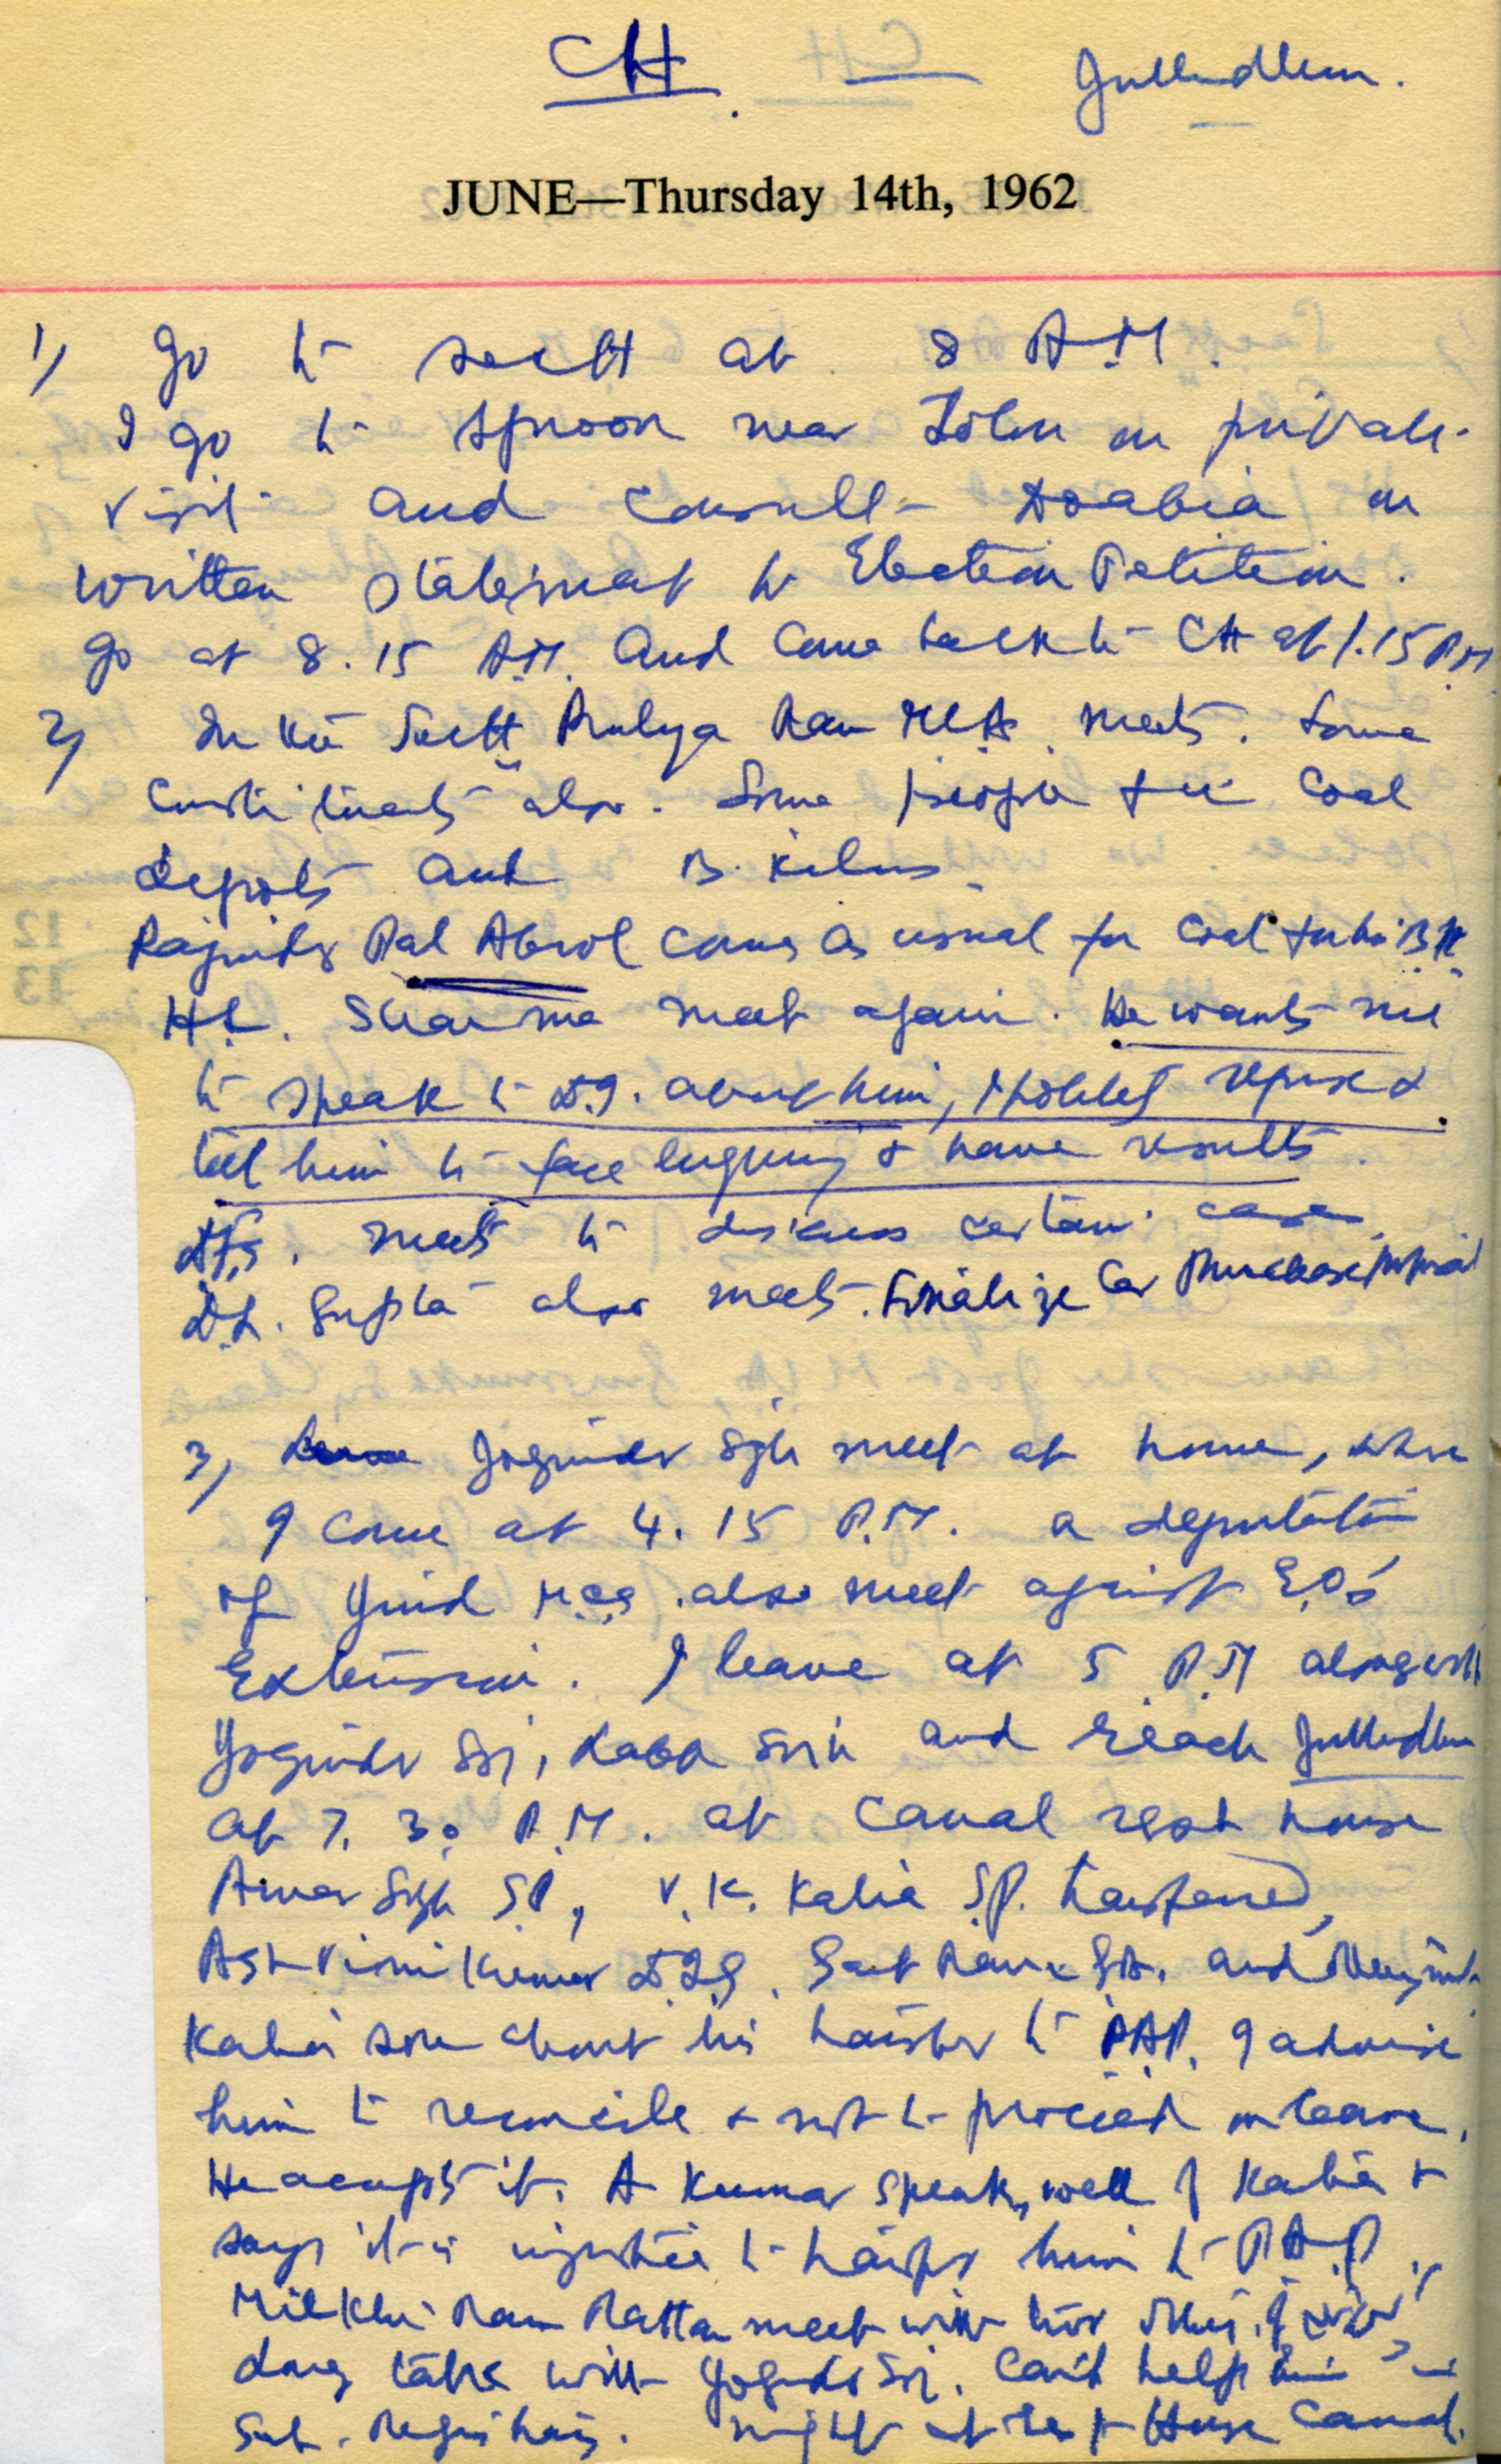 CH. Jullundhur.
JUNE—Thursday 14th, 1962
1) Go to Sectt at 8 A.M.
I go to Spoon near Solan on private
visit and consult Doabia on
written statement to Election Petition.
Go at 8.15 A.M. and come back to CH at 1.15 P.M
2) In the Sectt Rulya Ram MLA meets. Some
constituents also. Some people for coal
depots and B. Kilns.
Rajinder Pal Abrol comes as usual for coal for his B.K.
H.L. Sharma meet again. He wants me
to speak to I.G. about him, I refused &
tell him to face enquiry & have results.
meets to discuss certain cases.
D.L. Gupta also meets. Finalize Car Purchase proposal
3) Joginder Sgh meet at home, where
I come at 4.15 P.M. a deputation
of Jind M.C. also meet against E.O's
Extension. I leave at 5 P.M alongwith
Yoginder and reach Jullundhur
at 7.30 P.M. at Canal rest house
Amar Sgh S.P., V.K. Kalia S.P. transferred,
Ashvini Kumar D.I.G. Sant Ram and
Kalia sore about his transfer to P.A.P. I advise
him to reconcile & not to proceed on leave.
He accepts it. A Kumar speaks well of Kalia &
says it is injustice to transfer him to P.A.P.
Milkhi Ram Ratta meet with
Long talks with Yoginder Sgh. Can't help him in
Sub-Registrar. Night at Rest House Canal.